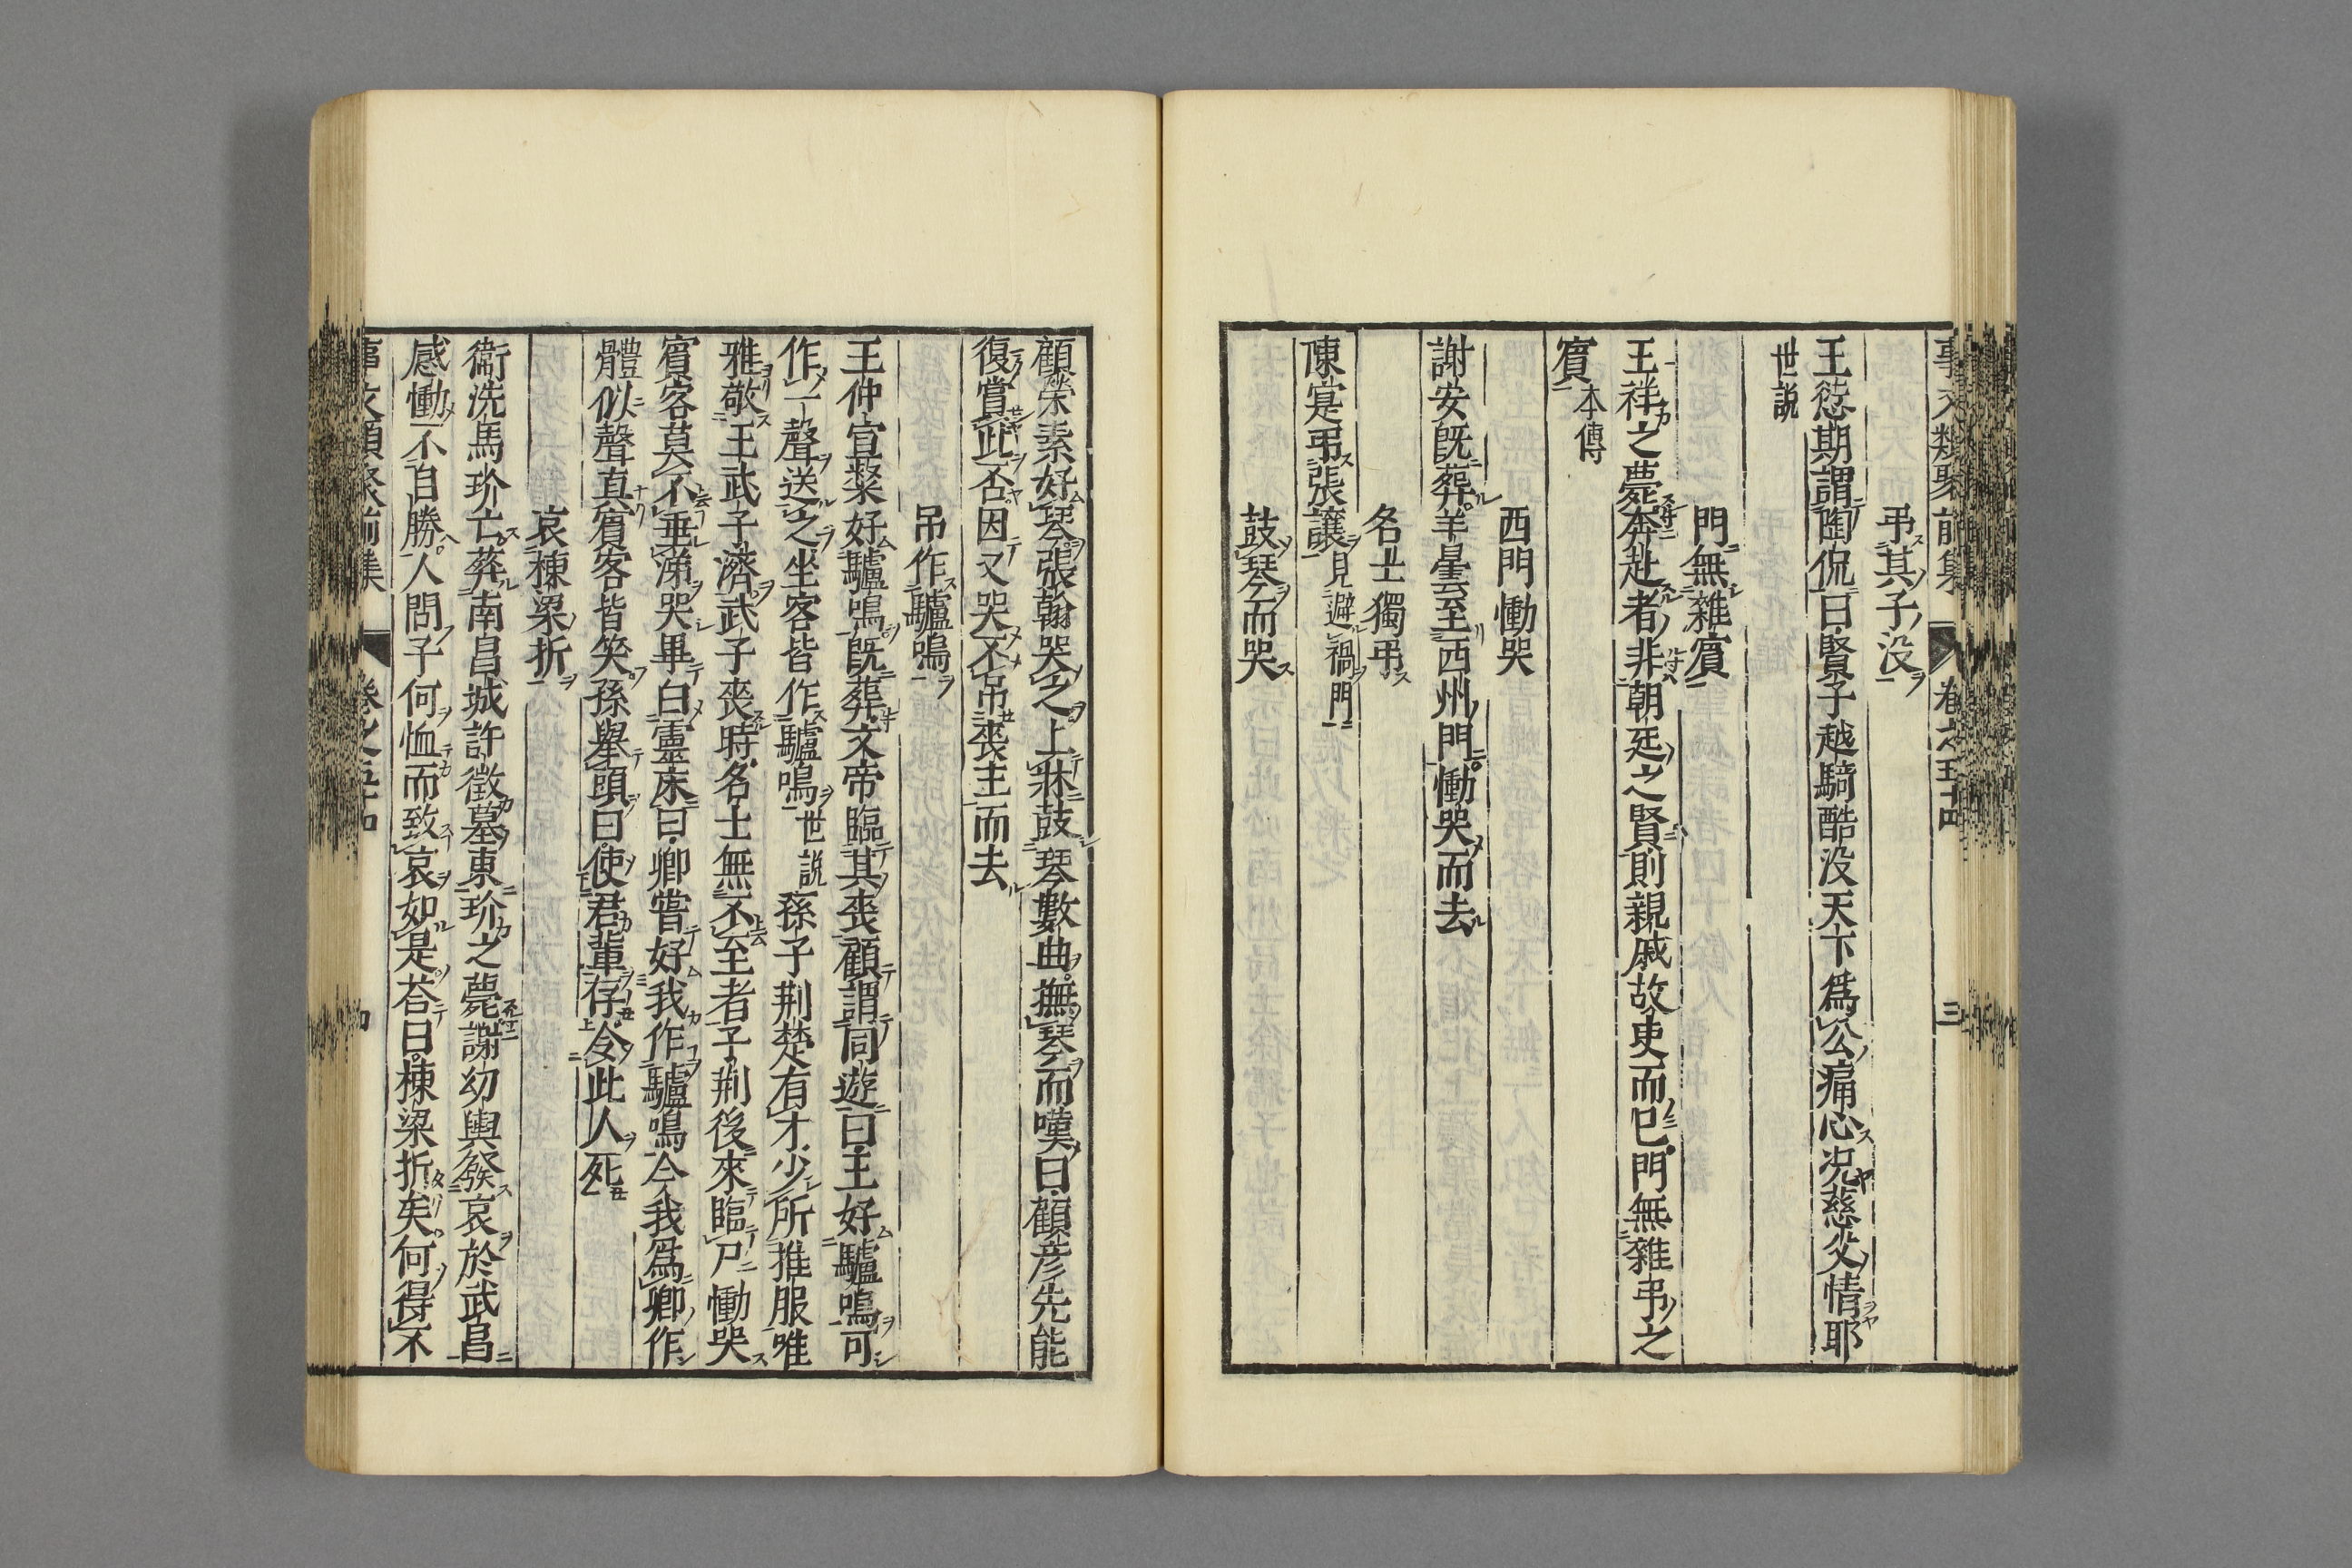 事文類聚前集 卷之五十四 三
弔其子没
王愆期謂陶侃曰賢子越騎酷没天下為公痛心况慈父情耶
世説
門無雜賔
王祥之薨奔赴者非朝廷之賢則親戚故吏而已門無雜弔之
賔本傳
西門慟哭
謝安既葬羊曇至西州門慟哭而去
名士獨弔
陳寔弔張讓見避禍門
鼓琴而哭
顧榮素好琴張翰哭之上牀鼓琴數曲撫琴而嘆曰顧彦先能
復嘗此否因又哭不吊丧主而去
吊作驢鳴
王仲宣粲好驢鳴既葬文帝臨其丧顧謂同遊曰王好驢鳴可
作一聲送之坐客皆作驢鳴世説孫子荆楚有才少所推服唯
雅敬王武子濟武子丧時名士無不至者子荆後來臨尸慟哭
賔客莫不垂涕哭畢白靈床曰卿嘗好我作驢鳴今我爲卿作
體似聲真賔客皆笑孫舉頭曰使君輩存令此人死
哀棟梁折
衞洗馬玠亡葬南昌城許徵墓東玠之薨謝幼輿發哀於武昌
感慟不自勝人問子何恤而致哀如是荅曰棟梁折矣何得不
事文類聚前集 卷之五十四 四